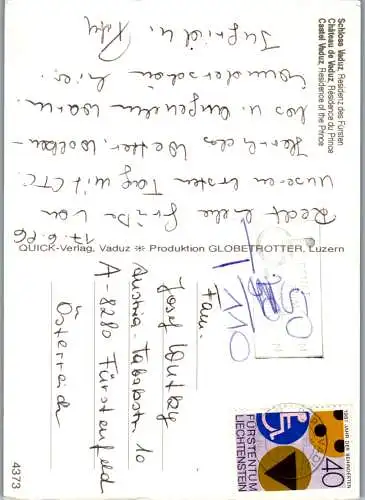 Schloss Vaduz, Residenz des Fürsten
Château de Vaduz, Résidence du Prince
Castel Vaduz, Residence of the Prince
17.6.86
Recht liebe Grüße von
unseren ersten Tag mit CTC.
Herrliches Wetter, Wolken-
los u. angenehm warm.
Wunderschön hier.
Ingrid u.
QUICK-Verlag, Vaduz ✳ Produktion GLOBETROTTER, Luzern
Fam.
Josef
Austria-Tabakstr. 10
A-8280 Fürstenfeld
Österreich
4373
50
110
1981 JAHR DER BEHINDERTEN
40
FÜRSTENTUM
LIECHTENSTEIN